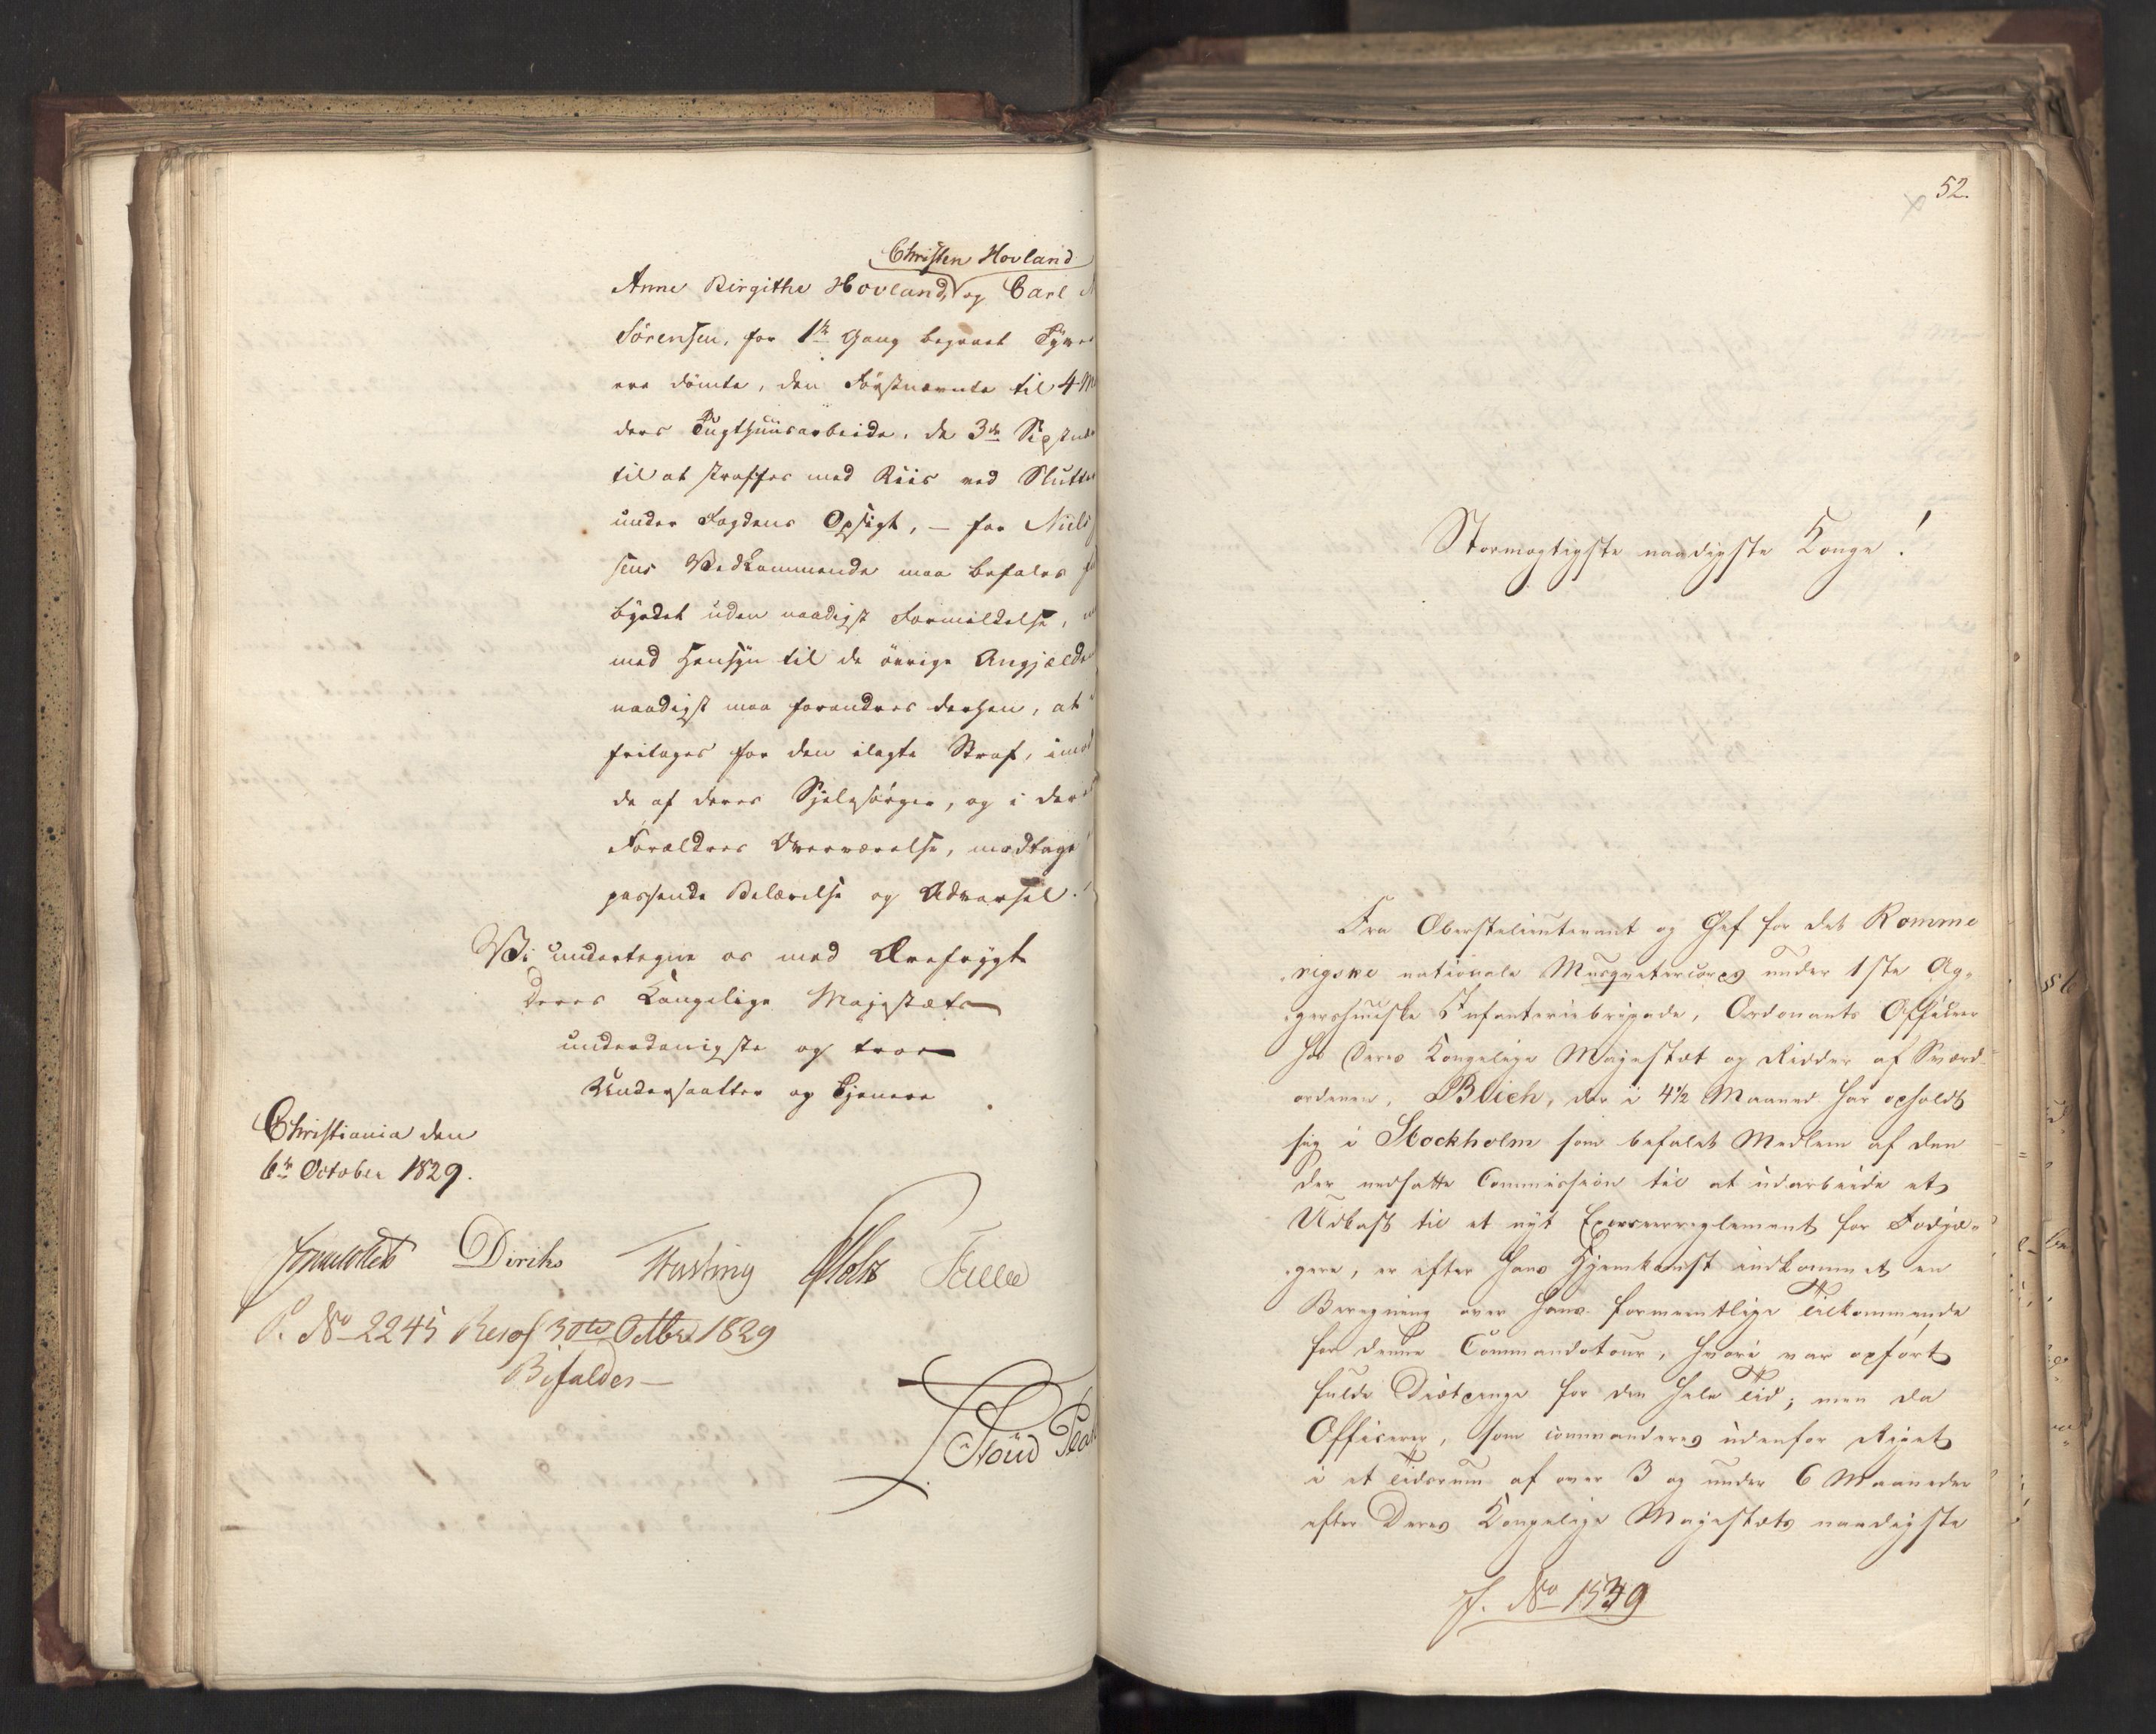 Christen Hovland
Anne Birgithe Hovland, og Carl
Sörensen, for 1ste Gang begaaet Tyve
ere dömte, den Förstnævnte til 4 M
ders Tugthuusarbeide, de 3de Sidstnæ
til at straffes med Riis ved Slutte
under Fogdens Opsigt, – for Niels
sens Vedkommende maa befales
byrdet uden naadigst Formildelse,
med Hensyn til de övrige Angjælde
naadigst maa forandres derhen, at
fritages for den ilagte Straf, imod
de af deres Sjelesörger, og i deres
Forældres Overværelse, modtage
passende Belærelse og Advarsel.
Vi undertegne os med Ærefrygt
Deres Kongelige Majestæts
underdanigste og troe
Undersaatter og Tjenere
Christiania den
6te October 1829.
Diriks Fasting Holst
P. No 2245 Resol 30te Octbr 1829
Bifaldes –
52.
Stormægtigste naadigste Konge!
Fra Oberstlieutenant og Chef for det Romme
rigske nationale Musqueteercorps under 1ste Ag=
gershuusiske Infanteriebrigade, Ordonants Officeer
hos Deres Kongelige Majestæt og Ridder af Sværd=
ordenen, Blich, der i 4½ Maaned har opholdt
sig i Stockholm som befalet Medlem af den
der nedsatte Commission til at udarbeide et
Udkast til et nyt Exerceerreglement for Fodjæ=
gere, er efter hans Hjemkomst indkommet en
Beregning over hans formeentlige Tilkommende
for denne Commandotour, hvori var opfört
fulde Diætpenge for den hele Tid; men da
Officerer, som commanderes udenfor Riget
i et Tidsrum af over 3 og under 6 Maaneder
efter Deres Kongelige Majestæts naadigste
J. No 1539